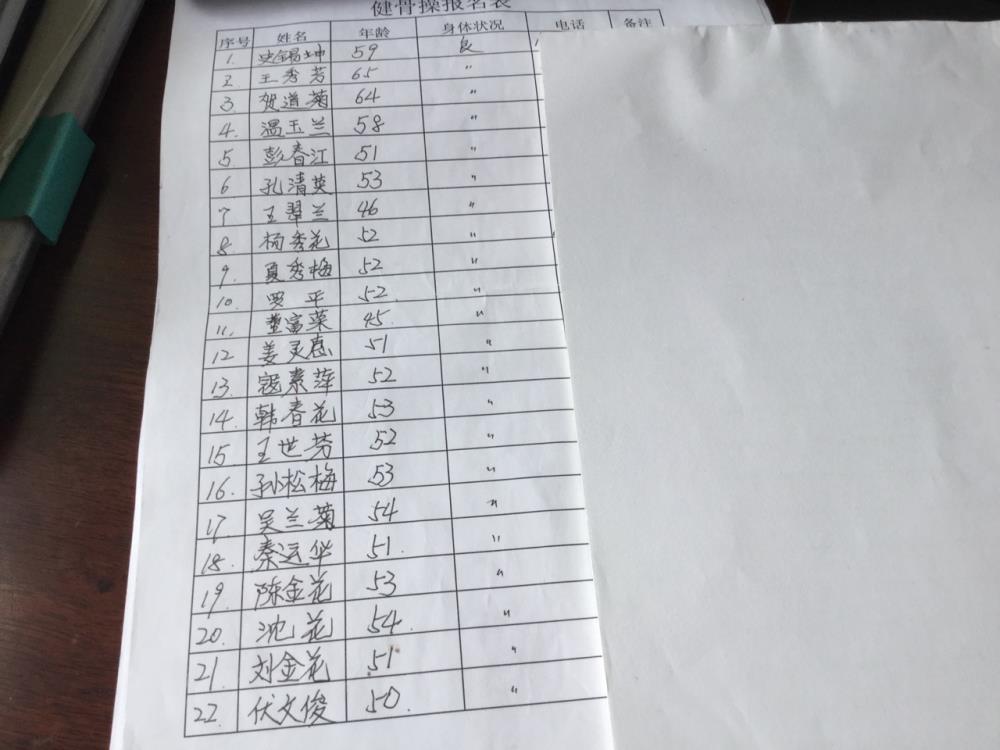 健骨操报名表
序号 姓名 年龄 身体状况 电话 备注
1. 史锡坤 59 良
2. 王秀芳 65 〃
3. 贺道菊 64 〃
4. 温玉兰 58 〃
5. 彭春江 51 〃
6 孔清英 53 〃
7 王翠兰 46 〃
8. 杨秀花 52 〃
9. 夏秀梅 52 〃
10. 罗平 52 〃
11. 富菜 45. 〃
12 姜灵惠 51 〃
13. 寇素萍 52 〃
14. 韩春花 53 〃
15. 王世芳 52 〃
16. 孙松梅 53 〃
17. 吴兰菊 54 〃
18. 秦运华 51. 〃
19. 陈金花 53 〃
20. 沈花 54. 〃
21. 刘金花 51 〃
22. 伏文俊 50. 〃